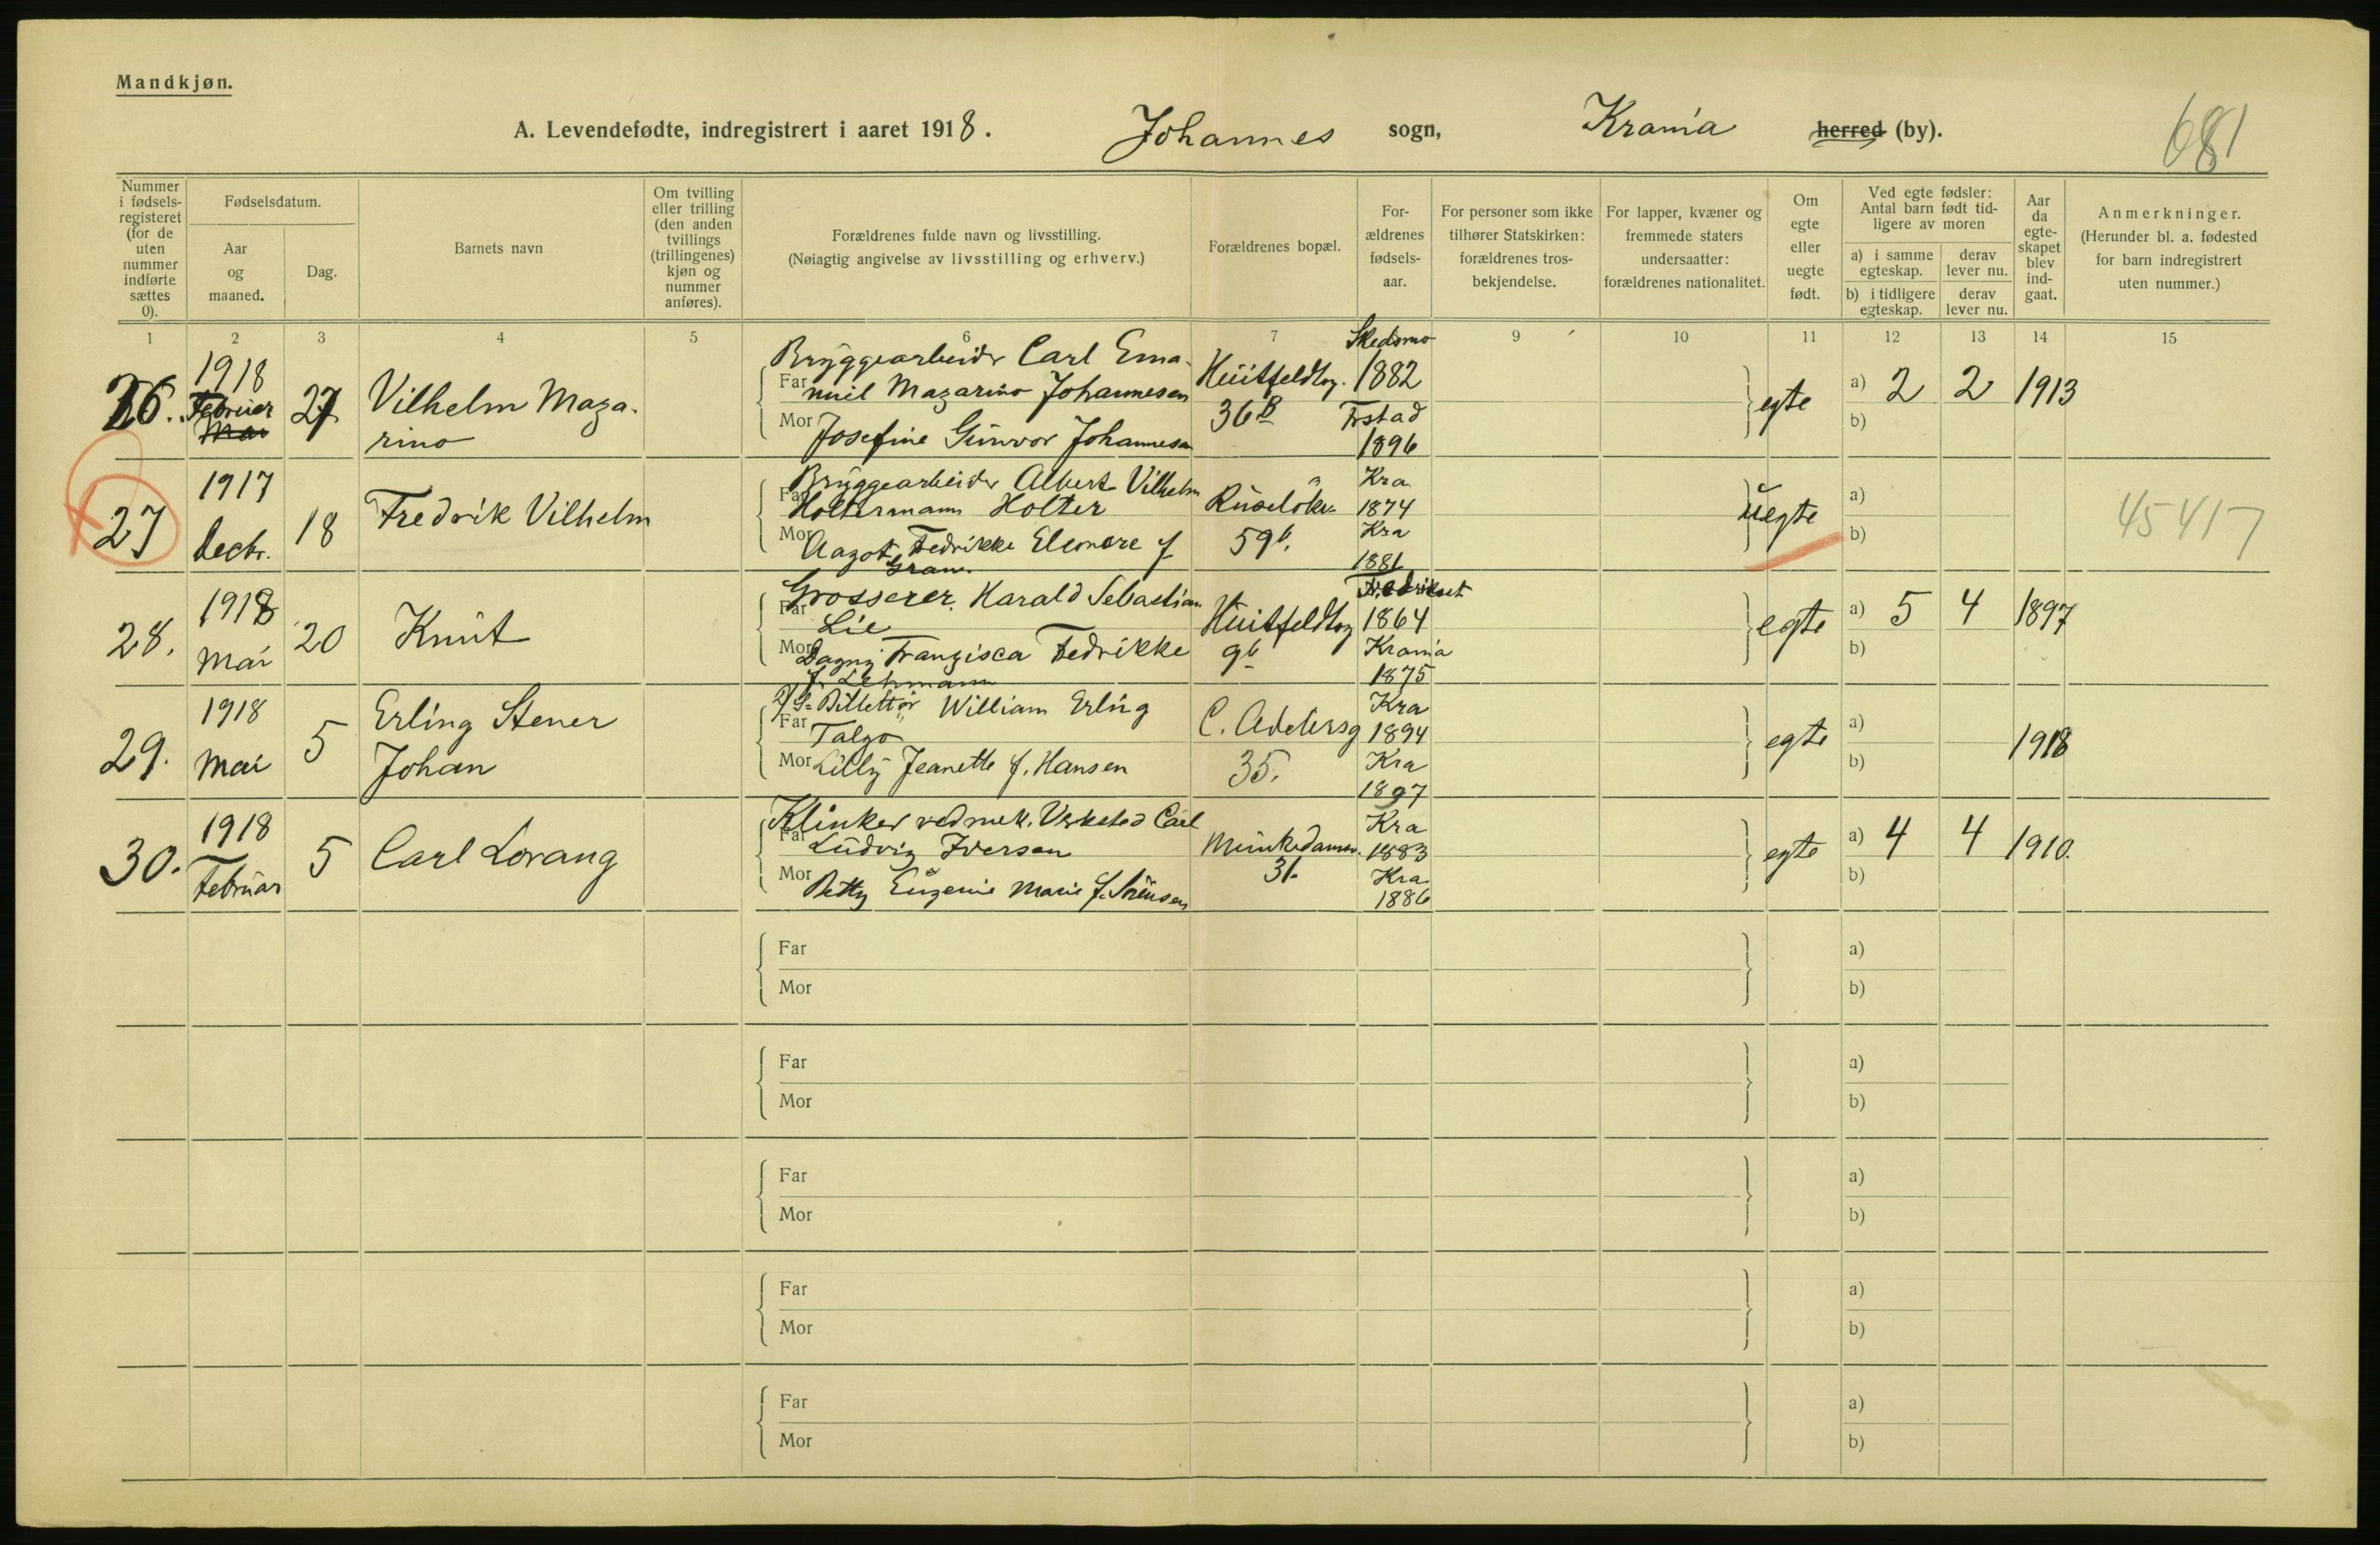 Mandkjøn.
A. Levendefødte, indregistrert i aaret 1918. Johannes sogn, Krania herred (by).
681
Nummer i fødsels-registeret (for de uten nummer indførte sættes 0).
Fødselsdatum.
Aar og maaned.
Dag.
Barnets navn
Om tvilling eller trilling (den anden tvillings (trillingenes) kjøn og nummer anføres).
Forældrenes fulde navn og livsstilling.
(Nøiagtig angivelse av livsstilling og erhverv.)
Forældrenes bopæl.
For-ældrenes fødsels-aar.
For personer som ikke tilhører Statskirken: forældrenes tros-bekjendelse.
For lapper, kvæner og fremmede staters undersaatter: forældrenes nationalitet.
Om egte eller uegte født.
Ved egte fødsler: Antal barn født tid-ligere av moren
a) i samme egteskap.
derav lever nu.
b) i tidligere egteskap.
derav lever nu.
Aar da egte-skapet blev ind-gaat.
Anmerkninger.
(Herunder bl. a. fødested for barn indregistrert uten nummer.)
1 2 3 4 5 6 7 9 10 11 12 13 14 15
26. 1918 Februer Mai 27 Vilhelm Maza-
rino
Bryggearbeider Carl Ema-
Far nuel Mazarino Johannesen
Mor Josefine Gunvor Johannesen
Huitfeldtsg. 36B
Skedsmo 1882
Frstad 1896
egte a) 2 2 1913
b)
27 1917 Decbr. 18 Fredrik Vilhelm
Bryggearbeider Albert Vilhelm
Far Holtermann Holter
Mor Aagot Fedrikke Eleonore f.
Gram.
Ruseløkv. 59b.
Kra 1874
Kra 1881
uegte a)
b)
45417
28. 1918 Mai 20 Knut
Grosserer Harald Sebastian
Far Lie
Mor Dagny Franzisca Fedrikke
f. Lehmann
Huitfeldtsg 9b
Fredrikset 1864
Krania 1875
egte a) 5 4 1897
b)
29. 1918 Mai 5 Erling Stener
Johan
Billettør William Erling
Far Talgo
Mor Lilly Jeanette f. Hansen
C. Adelersg 35.
Kra 1894
Kra 1897
egte a) 1918
b)
30. 1918 Februar 5 Carl Lorang
Klinker ved mek. Verksted Carl
Far Ludvig Iversen
Mor Betty Eugenie Marie f. Sørensen
Munkedamsv. 31.
Kra 1883
Kra 1886
egte a) 4 4 1910.
b)
Far a)
Mor b)
Far a)
Mor b)
Far a)
Mor b)
Far a)
Mor b)
Far a)
Mor b)